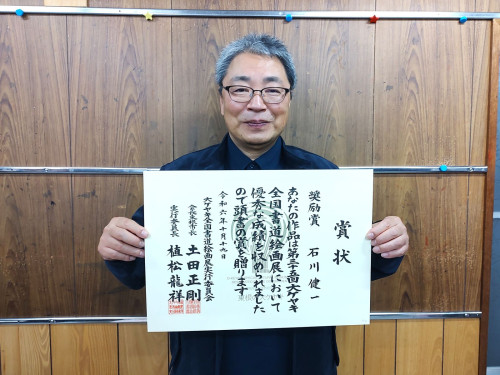 賞状
奨励賞　石川健一
あなたの作品は第三十五回大ケヤキ
全国書道絵画展において
優秀な成績を収められました
ので頭書の賞を贈ります
令和六年十月十九日
大ケヤキ全国書道絵画展実行委員会
土田正剛
実行委員長　植松龍祥